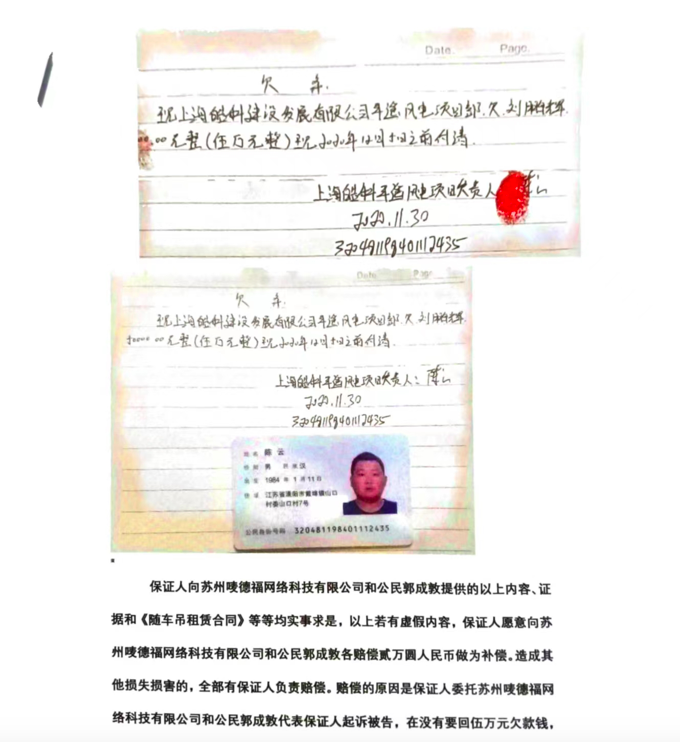 Date. Page.
欠 条.
现上海皓科建设发展有限公司平遥风电项目部.欠.刘
.00元整(伍万元整)现2020年12月10日之前付清.
上海皓科平遥风电项目负责人
2020.11.30
320481198401112435
Date. Page.
欠 条.
现上海皓科建设发展有限公司平遥风电项目部.欠.刘
50000.00元整(伍万元整)现2020年12月10日之前付清.
上海皓科平遥风电项目负责人:陈云
2020.11.30
320481198401112435
姓名 陈云
性别 男 民族 汉
出生 1984年1月11日
住址 江苏省溧阳市戴埠镇山口
村委山口村7号
公民身份号码 320481198401112435
保证人向苏州唛德福网络科技有限公司和公民郭成敦提供的以上内容、证
据和《随车吊租赁合同》等等均实事求是，以上若有虚假内容，保证人愿意向苏
州唛德福网络科技有限公司和公民郭成敦各赔偿贰万圆人民币做为补偿。造成其
他损失损害的，全部有保证人负责赔偿。赔偿的原因是保证人委托苏州唛德福网
络科技有限公司和公民郭成敦代表保证人起诉被告，在没有要回伍万元欠款钱，